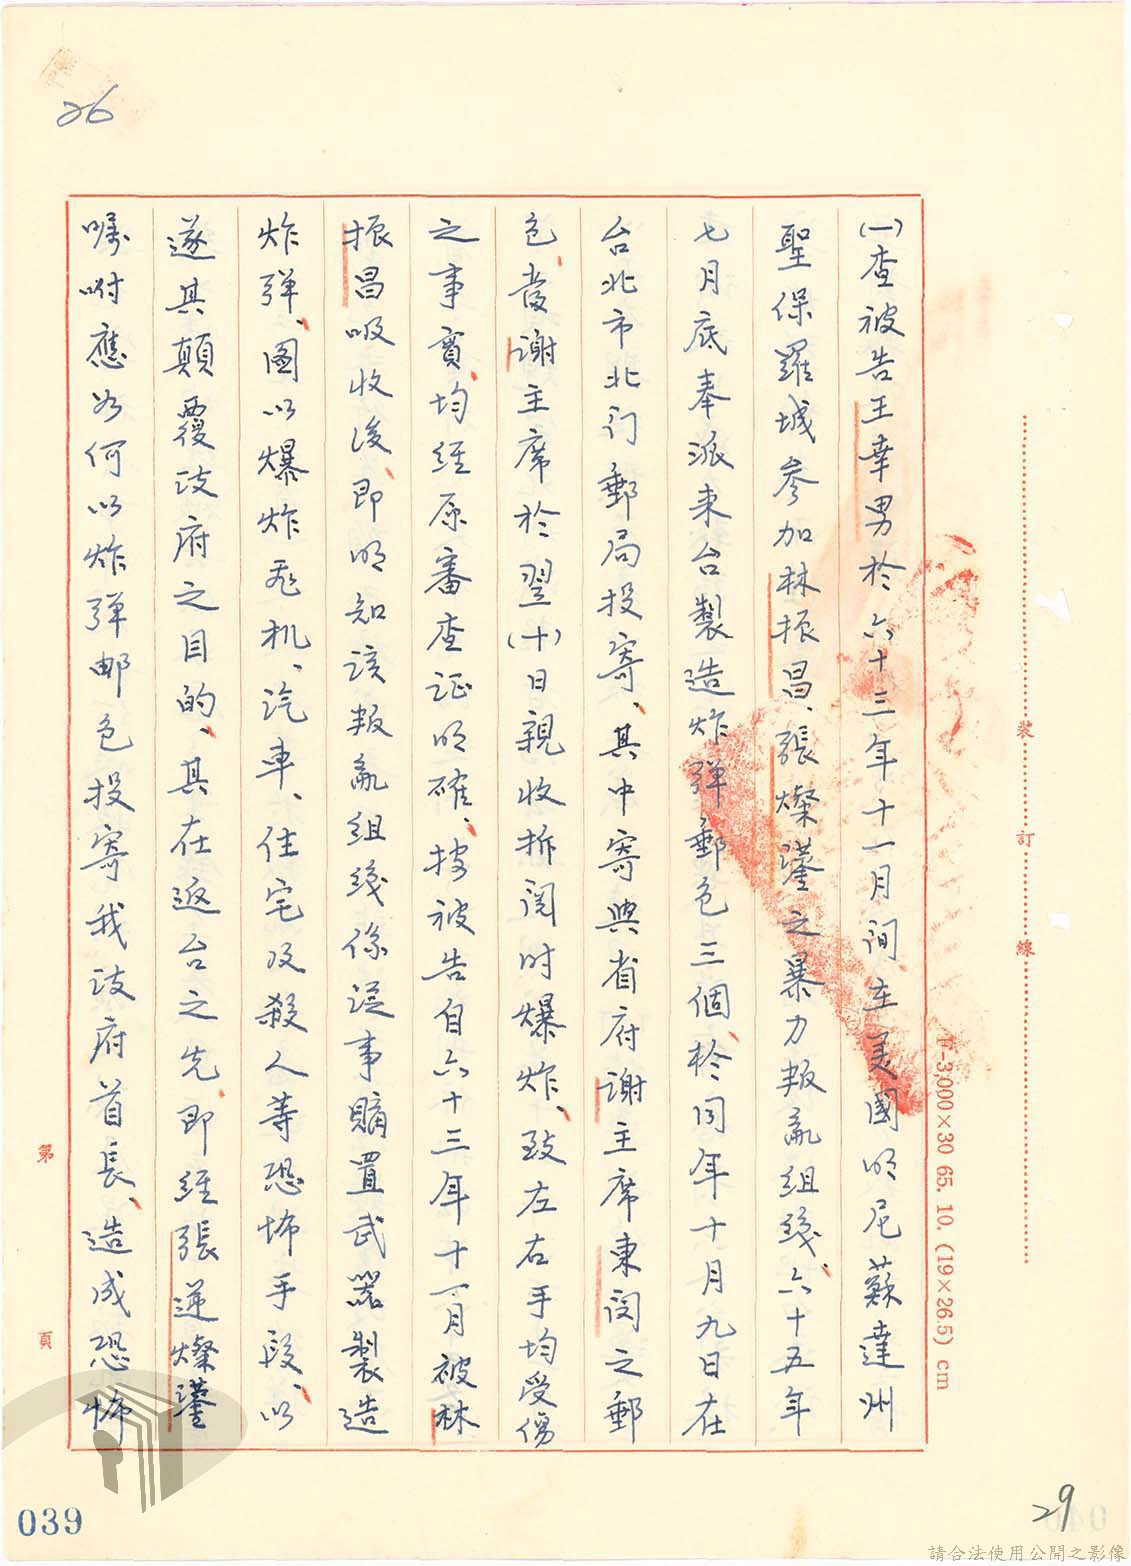 26
(一)查被告王幸男於六十三年十一月間在美國明尼蘇達州
聖保羅城參加林振昌、張燦鍙之暴力叛亂組織、六十五年
七月底奉派來台製造炸弹郵包三個、於同年十月九日在
台北市北门郵局投寄、其中寄與省府謝主席東閔之郵
包、當謝主席於翌(十)日親收拆閱时爆炸、致左右手均受傷
之事實、均經原審查证明確、按被告自六十三年十一月被林
振昌吸收後、即明知該叛亂組織係從事購置武器製造
炸弹、圖以爆炸飛机、汽車、住宅及殺人等恐怖手段、以
遂其顛覆政府之目的、其在返台之先、即經張逆燦鍙
囑咐應如何以炸弹邮包投寄我政府首長、造成恐怖
裝 訂 線
F-3000×30 65.10. (19×26.5) cm
第 頁
039
29
請合法使用公開之影像